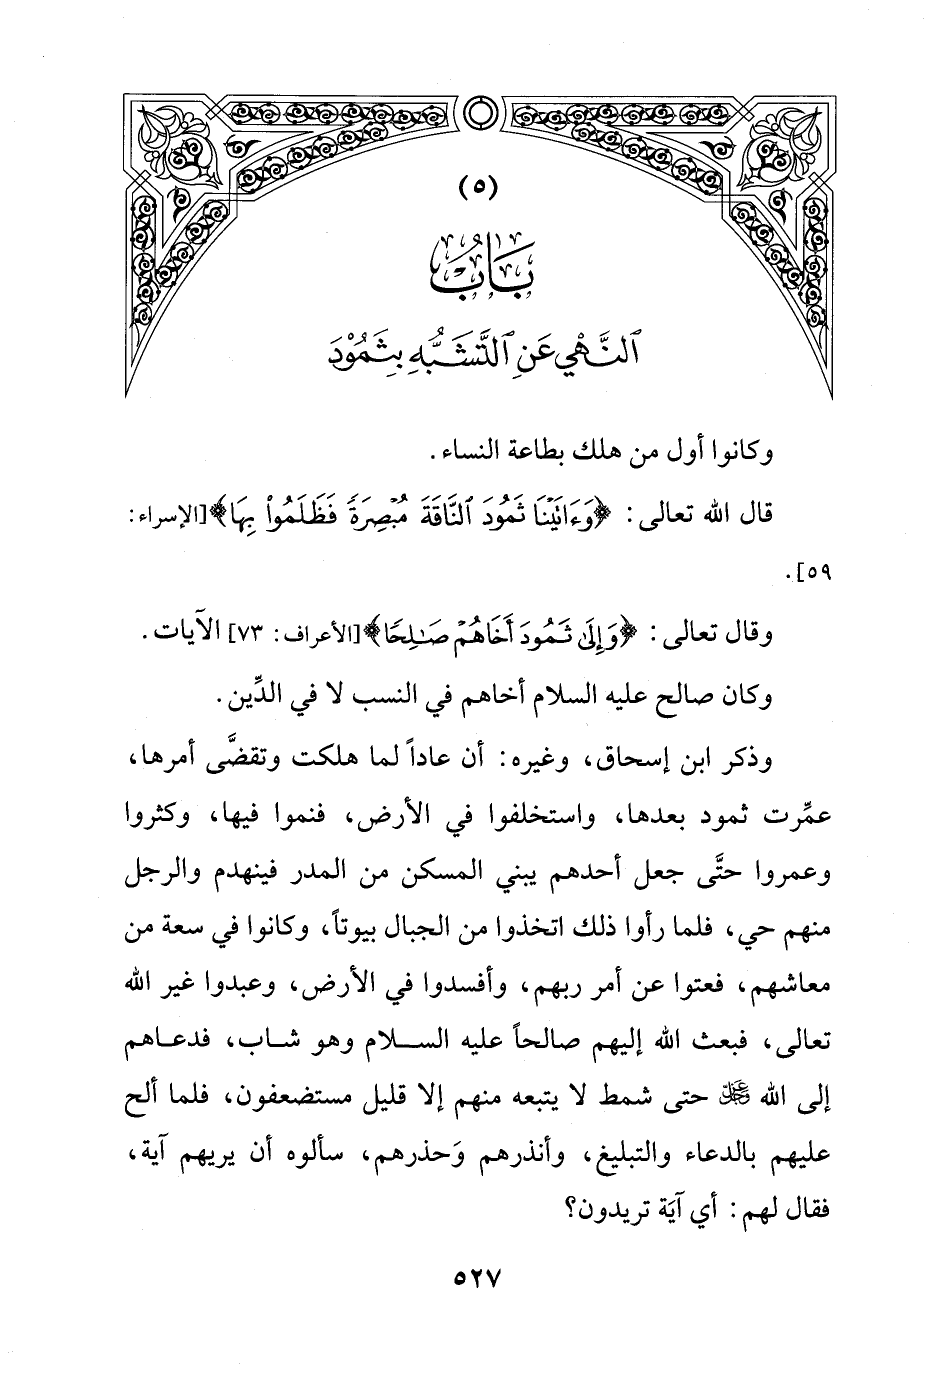 (٥)
بَابُ
ٱلنَّهْيِ عَنِ ٱلتَّشَبُّهِ بِثَمُوْدَ
وكانوا أول من هلك بطاعة النساء.
قال الله تعالى: ﴿وَءَاتَيْنَا ثَمُودَ ٱلنَّاقَةَ مُبْصِرَةً فَظَلَمُوا۟ بِهَا﴾[الإسراء:
٥٩].
وقال تعالى: ﴿وَإِلَىٰ ثَمُودَ أَخَاهُمْ صَٰلِحًا﴾[الأعراف: ٧٣] الآيات.
وكان صالح عليه السلام أخاهم في النسب لا في الدِّين.
وذكر ابن إسحاق، وغيره: أن عاداً لما هلكت وتقضَّى أمرها،
عمِّرت ثمود بعدها، واستخلفوا في الأرض، فنموا فيها، وكثروا
وعمروا حتَّى جعل أحدهم يبني المسكن من المدر فينهدم والرجل
منهم حي، فلما رأوا ذلك اتخذوا من الجبال بيوتاً، وكانوا في سعة من
معاشهم، فعتوا عن أمر ربهم، وأفسدوا في الأرض، وعبدوا غير الله
تعالى، فبعث الله إليهم صالحاً عليه الســلام وهو شــاب، فدعـاهم
إلى الله ﷿ حتى شمط لا يتبعه منهم إلا قليل مستضعفون، فلما ألح
عليهم بالدعاء والتبليغ، وأنذرهم وَحذرهم، سألوه أن يريهم آية،
فقال لهم: أي آيَة تريدون؟
٥٢٧